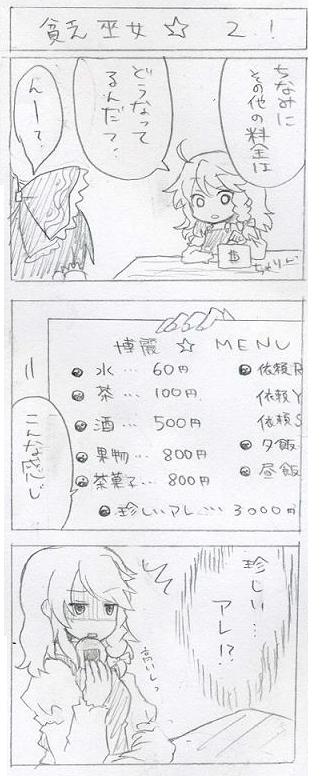 貧乏巫女☆ 2!
ちなみに
その他の料金は
どうなって
るんだ?
んー?
$
ちゃりーん
博霞 ☆ MENU
水… 60円
茶… 100円
酒… 500円
果物… 800円
茶菓子… 800円
珍しいアレ… 3000円
依頼R
依頼Y
依頼S
夕飯
昼飯
こんな感じ
珍しい…
アレ!?
高いしっ